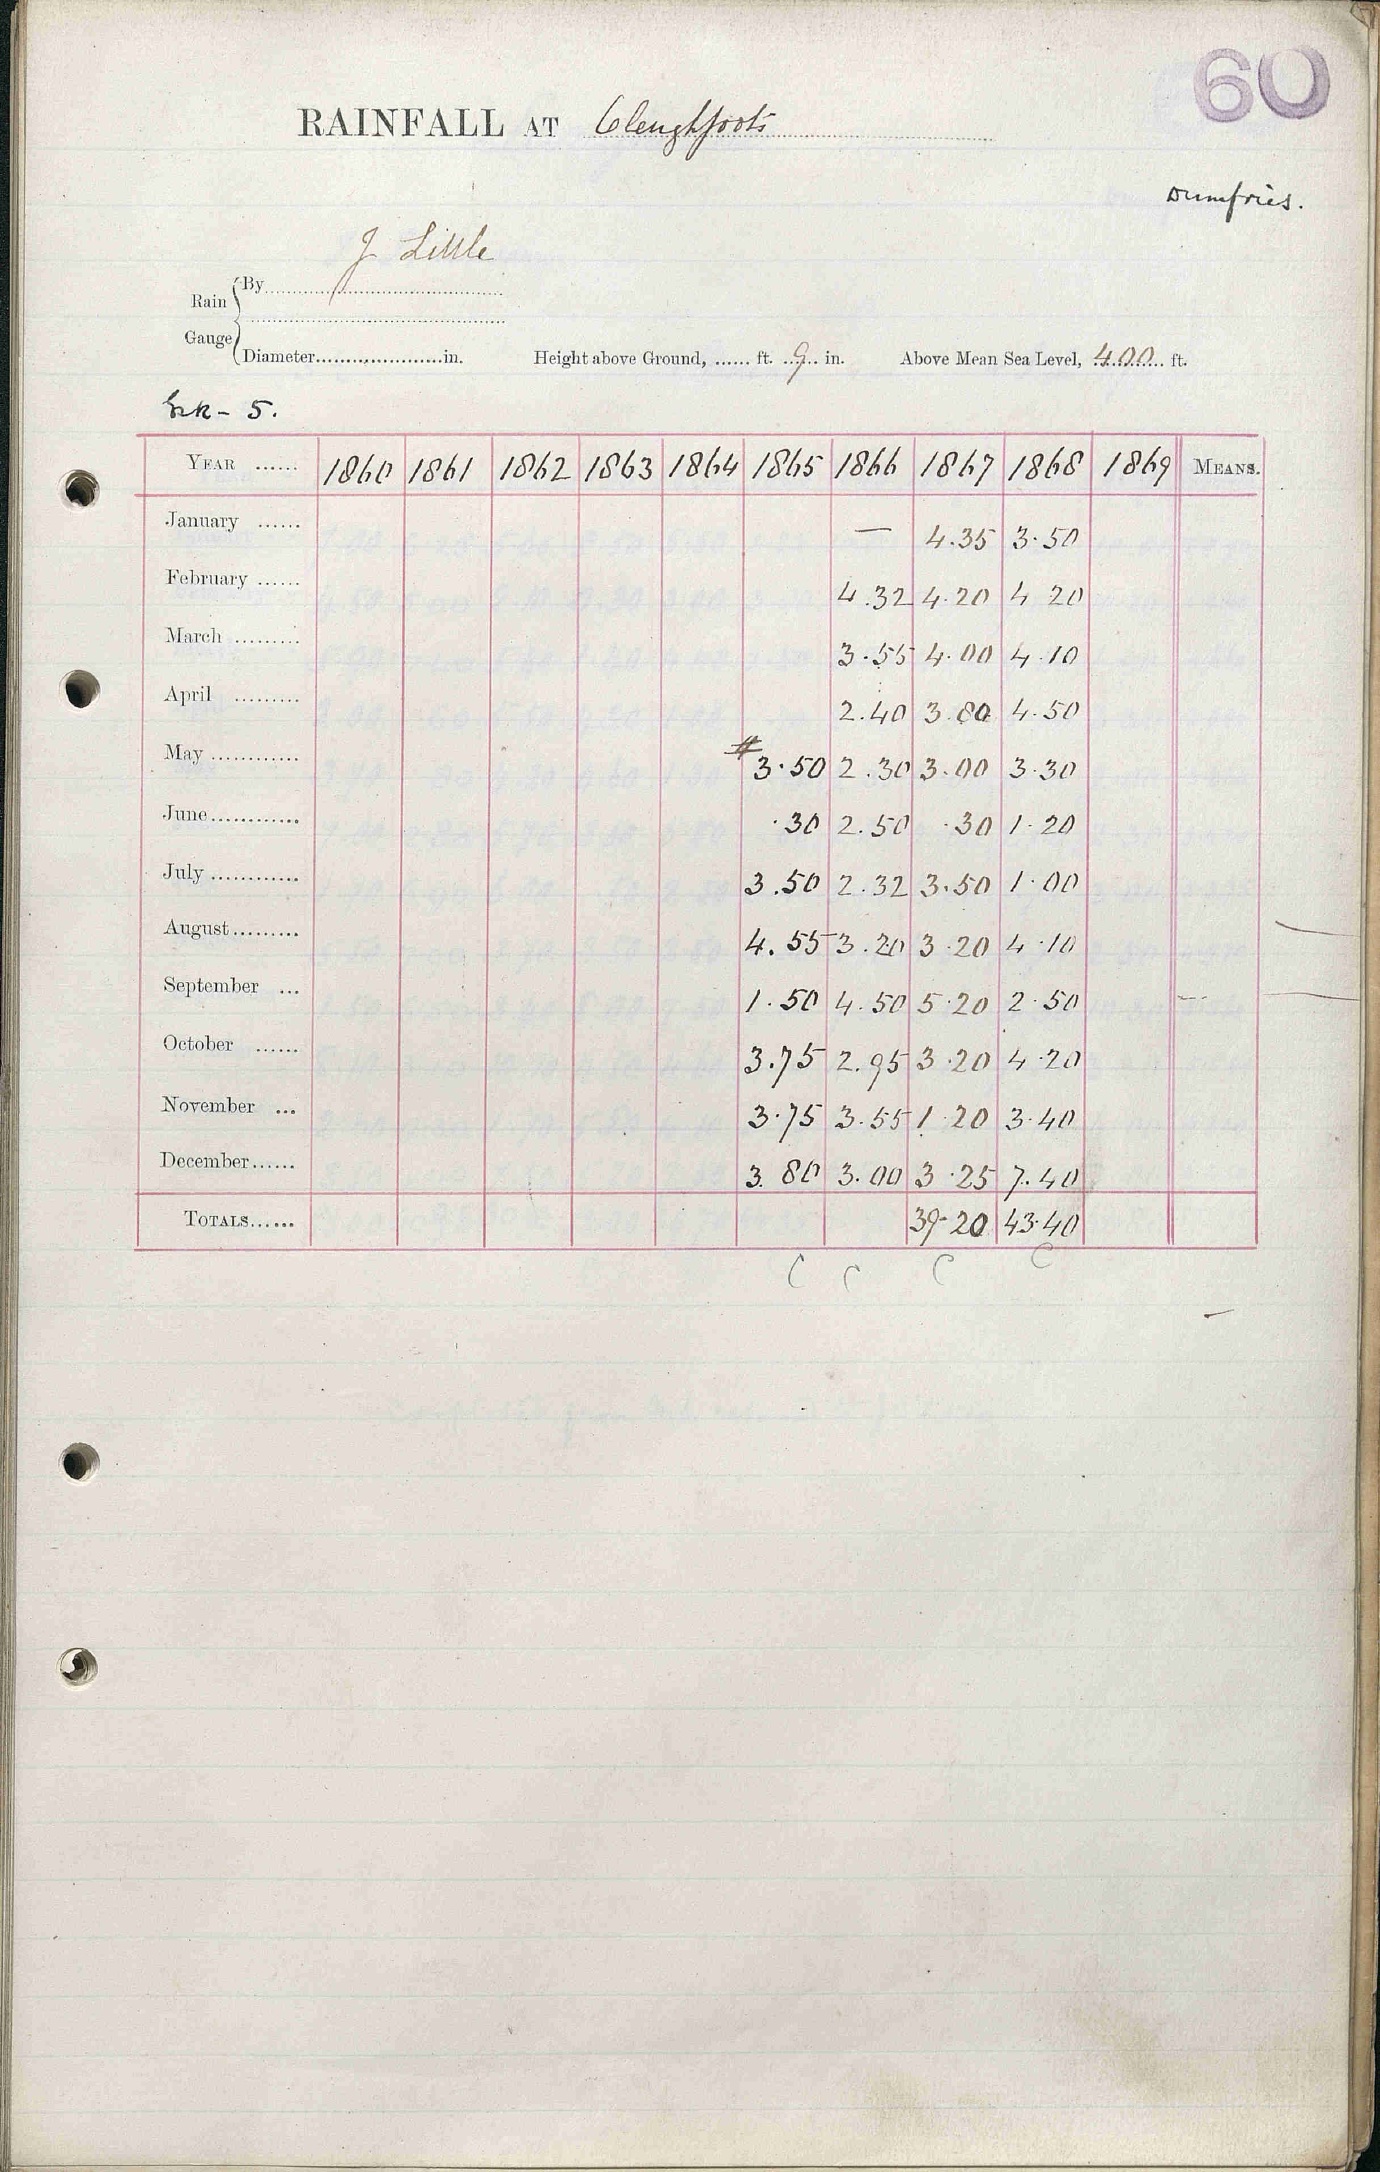 60
RAINFALL AT Cleughfoots
Dumfries.
J Little
Rain Gauge
By
Diameter in. Height above Ground, ft. 9 in. Above Mean Sea Level, 400 ft.
Esk - 5.
YEAR 1860 1861 1862 1863 1864 1865 1866 1867 1868 1869 MEANS.
January — 4.35 3.50
February 4.32 4.20 4.20
March 3.55 4.00 4.10
April 2.40 3.80 4.50
May # 3.50 2.30 3.00 3.30
June .30 2.50 .30 1.20
July 3.50 2.32 3.50 1.00
August 4.55 3.20 3.20 4.10
September 1.50 4.50 5.20 2.50
October 3.75 2.95 3.20 4.20
November 3.75 3.55 1.20 3.40
December 3.80 3.00 3.25 7.40
TOTALS 39.20 43.40
C C C C